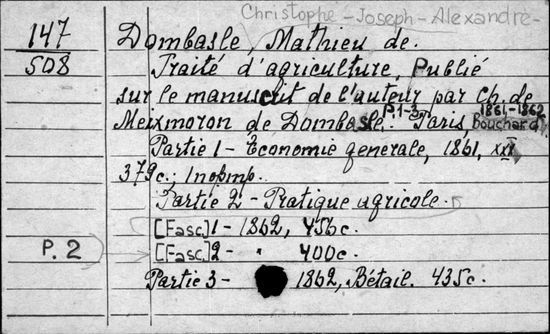 Christophe-Joseph-Alexandre-
147
508
Dombasle, Mathieu de.
Traité d'agriculture, Publié
sur le manuscrit de l'auteur par Ch. de
Meixmoron de Dombasle. P.1-3. Paris, Bouchard, 1861-1862
Partie 1 - Economie generale, 1861, XII,
379c.;
Partie 2 - Pratique agricole.
[Fasc] 1 - 1862, 456c.
P.2
[Fasc] 2 - " 400c.
Partie 3 - 1862, Bétail. 435c.